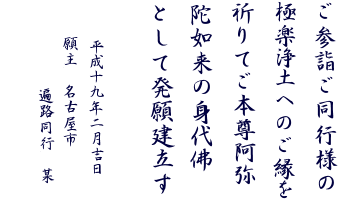 ご参詣ご同行様の
極楽浄土へのご縁を
祈りてご本尊阿弥
陀如来の身代佛
として発願建立す
平成十九年二月吉日
願主 名古屋市
遍路同行 某